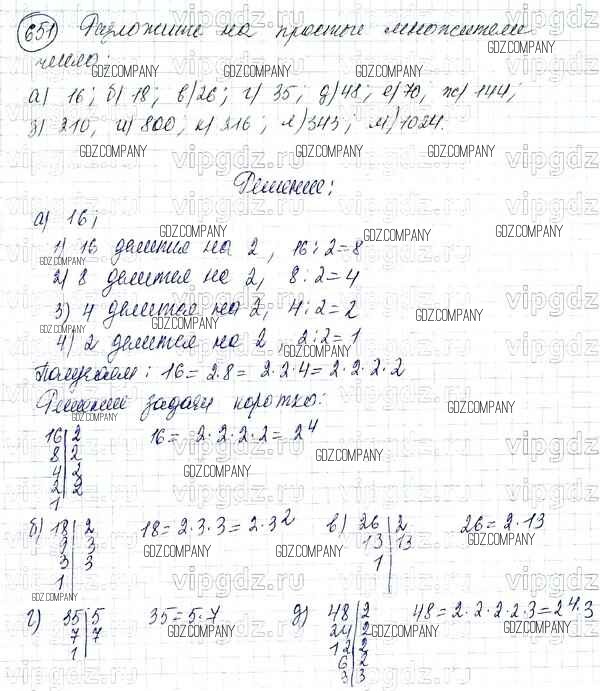 651 Разложите на простые множители
числа:
а) 16; б) 18; в) 26; г) 35; д) 48; е) 70, ж) 144;
з) 210, и) 800; к) 216; л) 343; м) 1024.
Решение:
а) 16;
1) 16 делится на 2, 16:2=8
2) 8 делится на 2, 8:2=4
3) 4 делится на 2, 4:2=2
4) 2 делится на 2, 2:2=1
Получаем: 16=2·8=2·2·4=2·2·2·2
Решение задачи коротко:
16|2 16=2·2·2·2=2⁴
8|2
4|2
2|2
1
б) 18|2 18=2·3·3=2·3² в) 26|2 26=2·13
9|3 13|13
3|3 1
1
г) 35|5 35=5·7 д) 48|2 48=2·2·2·2·3=2⁴·3
7|7 24|2
1 12|2
6|2
3|3
GDZ.COMPANY
vipgdz.ru